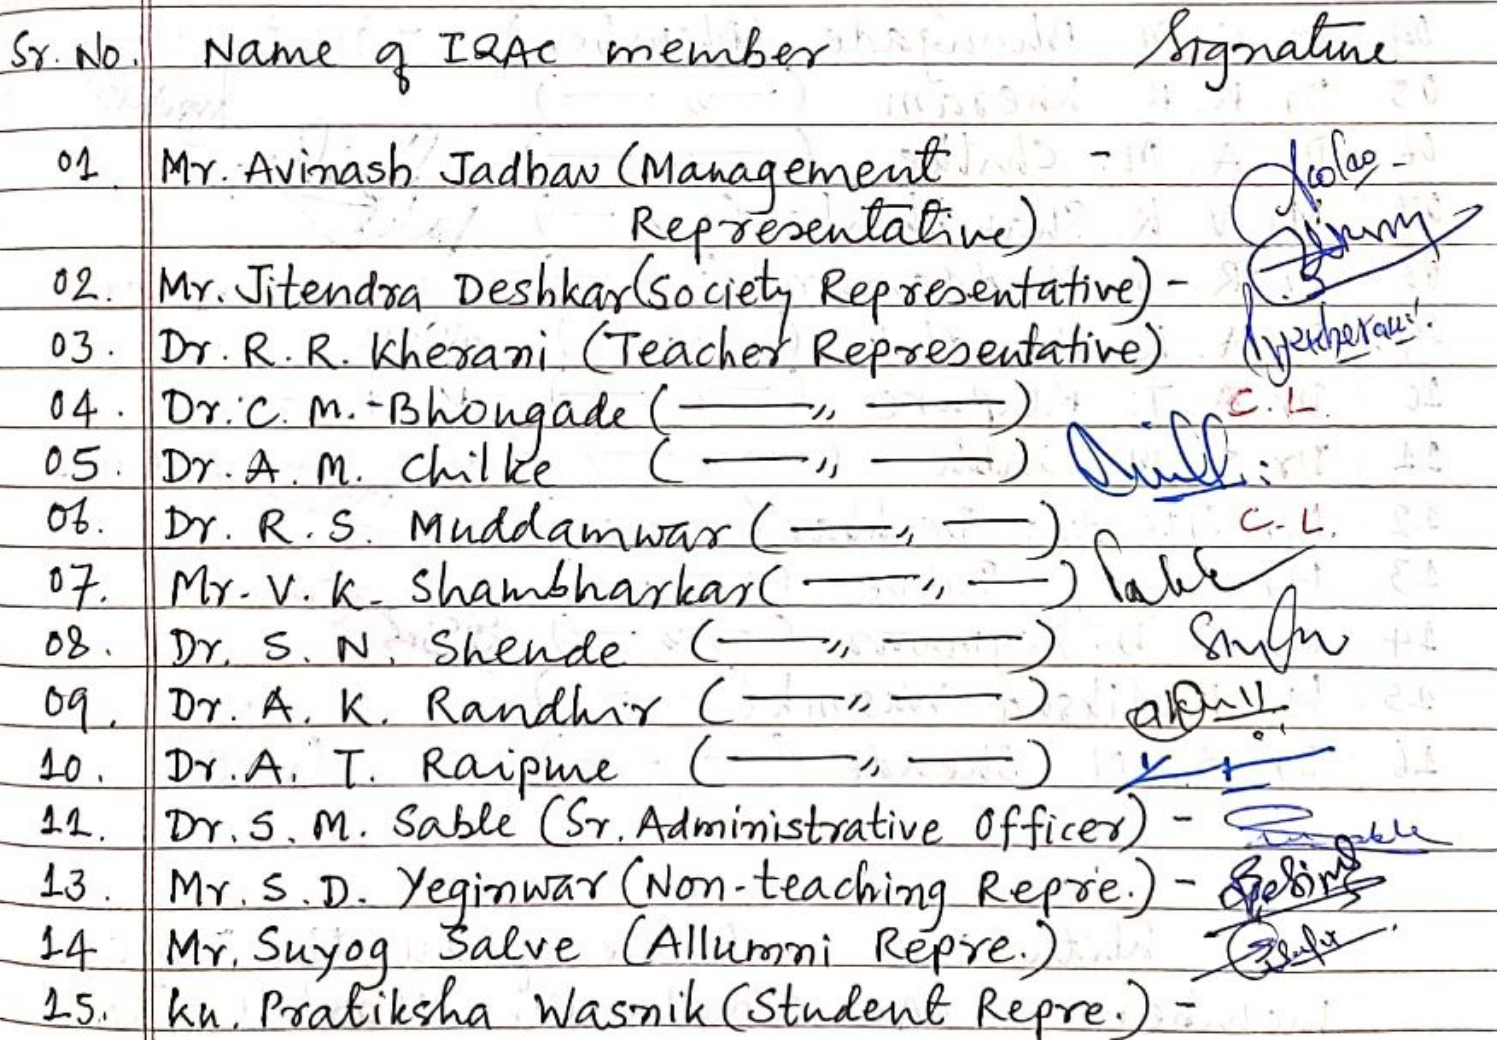 Sr. No. Name of IQAC member Signature
01 Mr. Avinash Jadhav (Management -
Representative)
02. Mr. Jitendra Deshkar (Society Representative) -
03. Dr. R. R. Kherani (Teacher Representative)
04. Dr. C. M. Bhongade ( —— ,, —— ) C. L.
05. Dr. A. M. Chilke ( —— ,, —— )
06. Dr. R. S. Muddamwar ( —— ,, —— ) C. L.
07. Mr. V. K. Shambharkar ( —— ,, —— )
08. Dr. S. N. Shende ( —— ,, —— )
09. Dr. A. K. Randhir ( —— ,, —— )
10. Dr. A. T. Raipure ( —— ,, —— )
11. Dr. S. M. Sable (Sr. Administrative Officer) -
13. Mr. S. D. Yeginwar (Non-teaching Repre.) -
14 Mr. Suyog Salve (Allumni Repre.)
15. Ku. Pratiksha Wasnik (Student Repre.) -